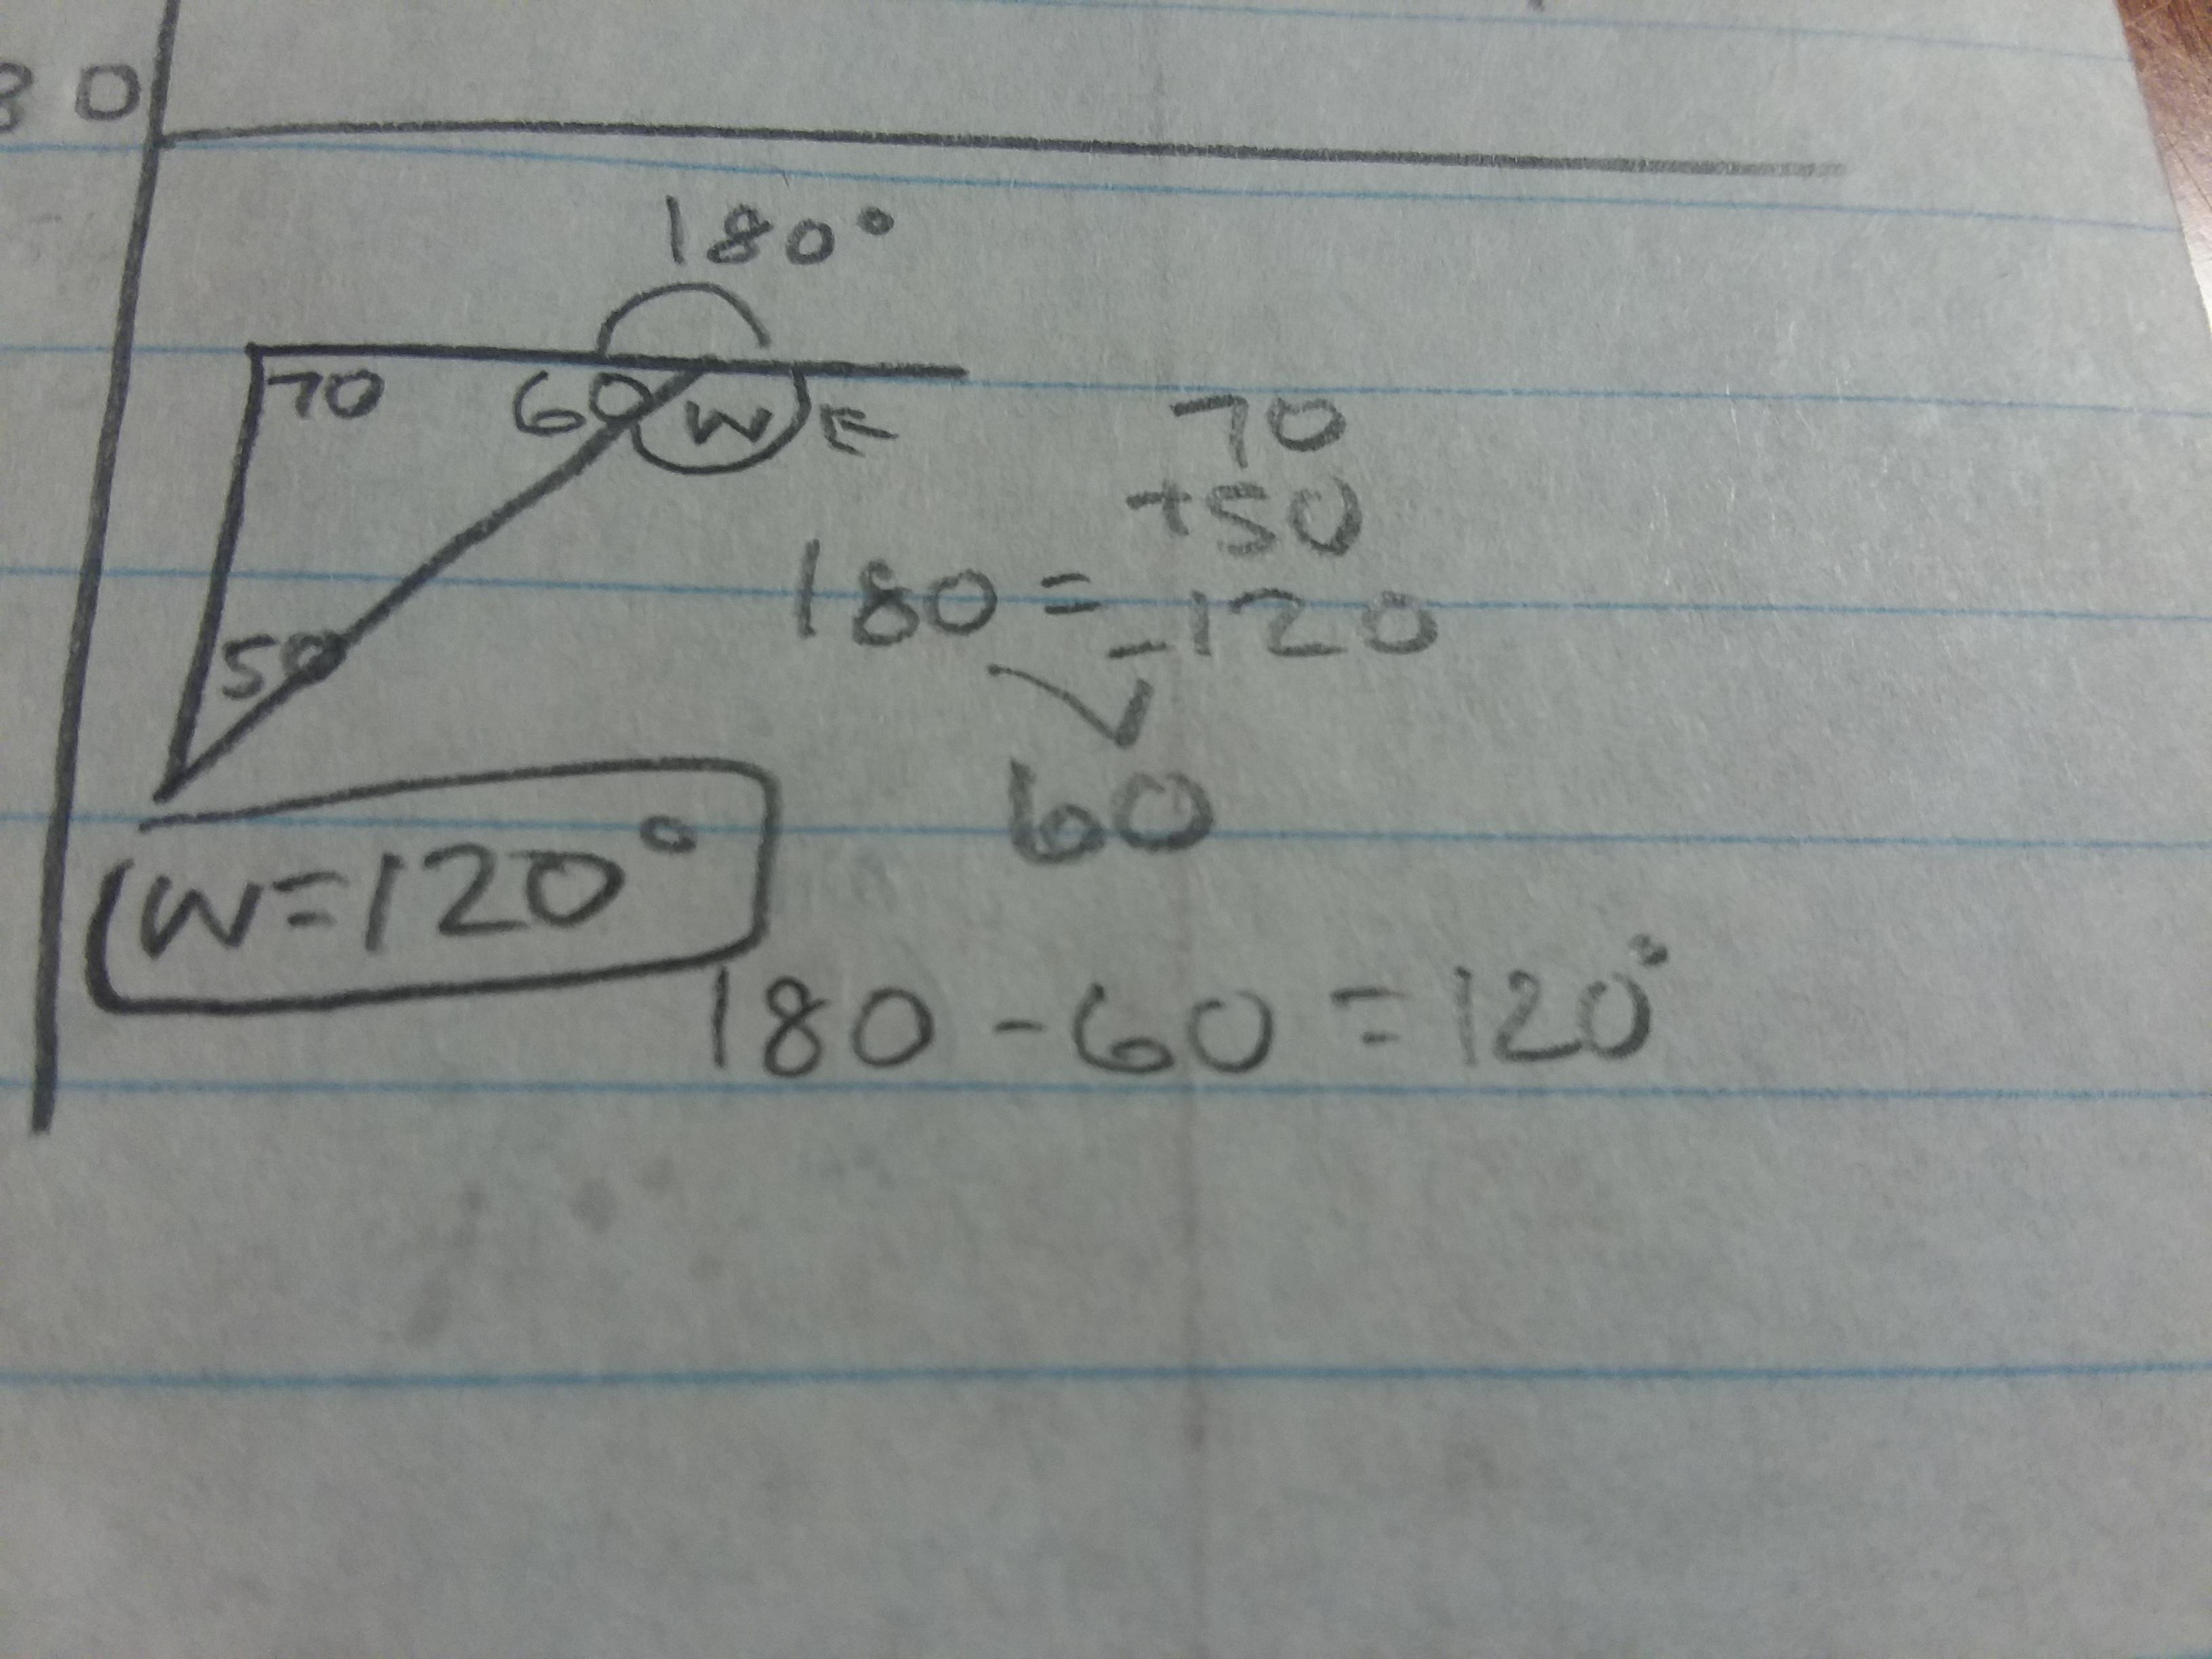 80
180°
70 60 W E
70
+50
180 = -120
50
60
W=120°
180 - 60 = 120°